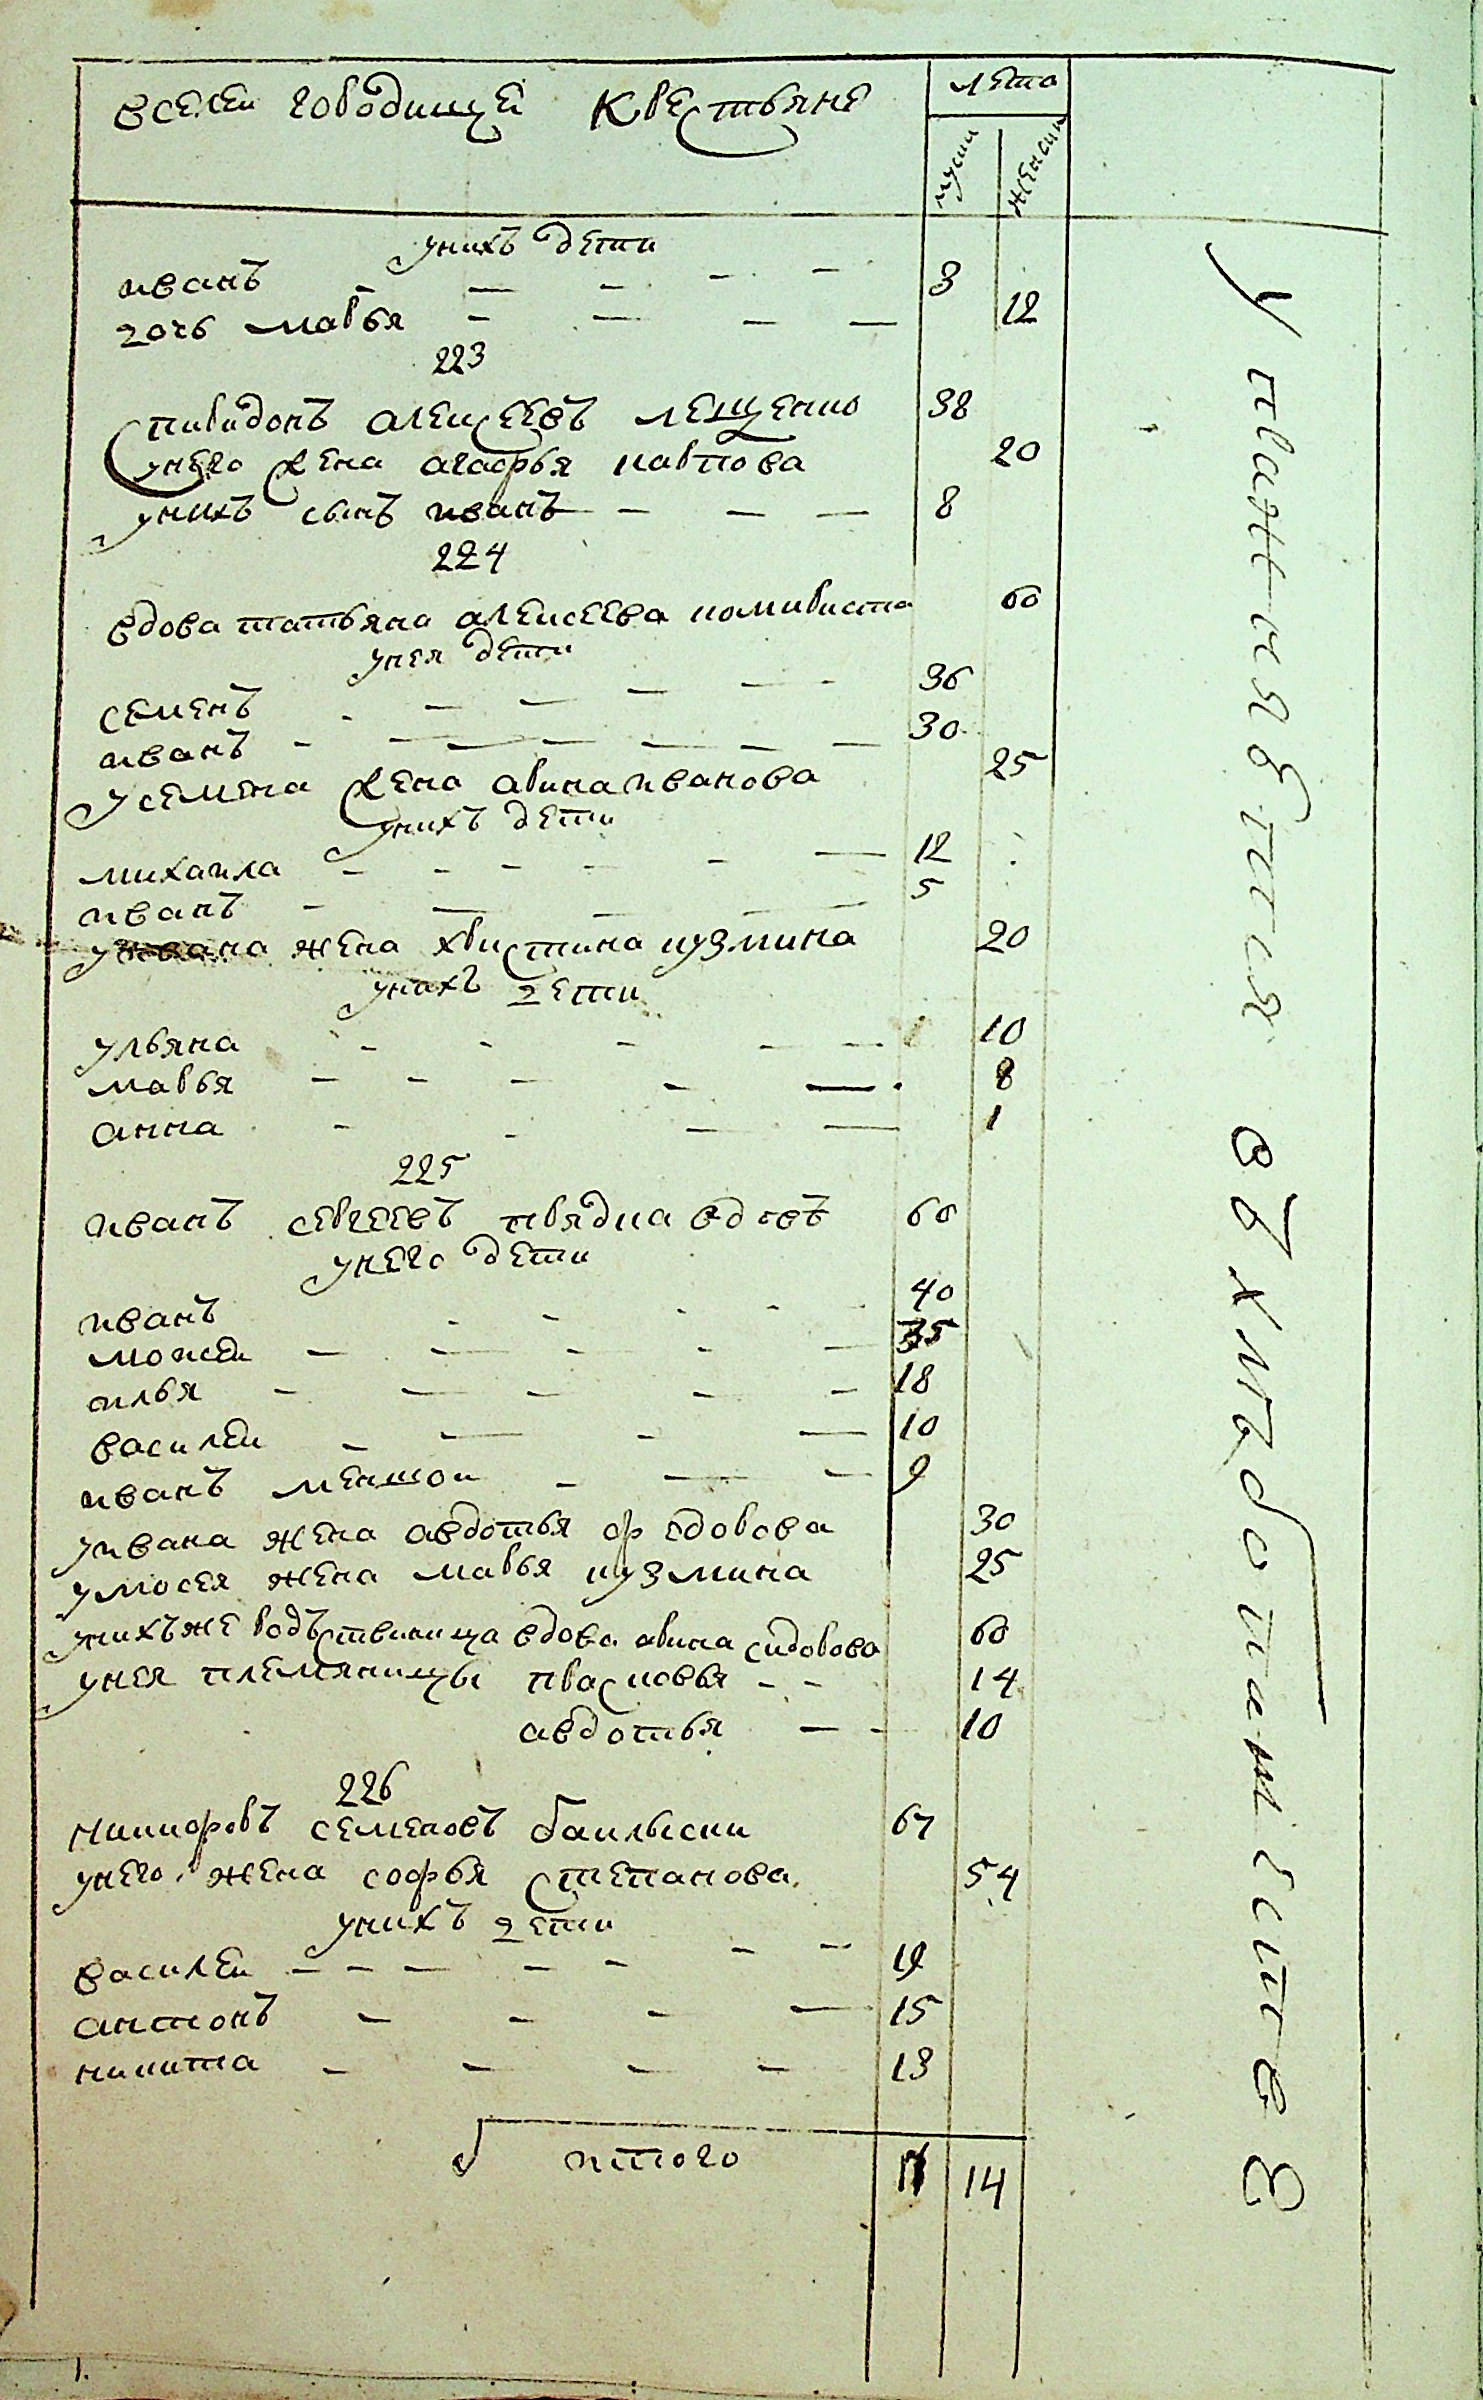 вселе городище крестьяне
лета
мужс
женск
у нихъ дети
иванъ 3
дочь марья 12
223
спиридонъ алексеевъ лещенко 38
у него жена агафья карпова 20
у нихъ сынъ иванъ 8
224
вдова татьяна алексеева 60
у нея дети
семенъ 36
иванъ 30
у семена жена арина иванова 25
у нихъ дети
михаила 12
иванъ 5
у ивана жена христина кузмина 20
у нихъ дети
ульяна 10
марья 8
анна 1
225
иванъ сергеевъ прядка вдовъ 60
у него дети
иванъ 40
моисеи 35
илья 18
василеи 10
иванъ меншои 9
у ивана жена авдотья федорова 30
у мосея жена марья кузмина 25
у нихъ же родственница вдова арина сидорова 60
у нея племяницы прасковья 14
авдотья 10
226
никифоръ семеновъ 67
у него жена софья степанова 54
у нихъ дети
василеи 19
антонъ 15
никита 13
итого 14